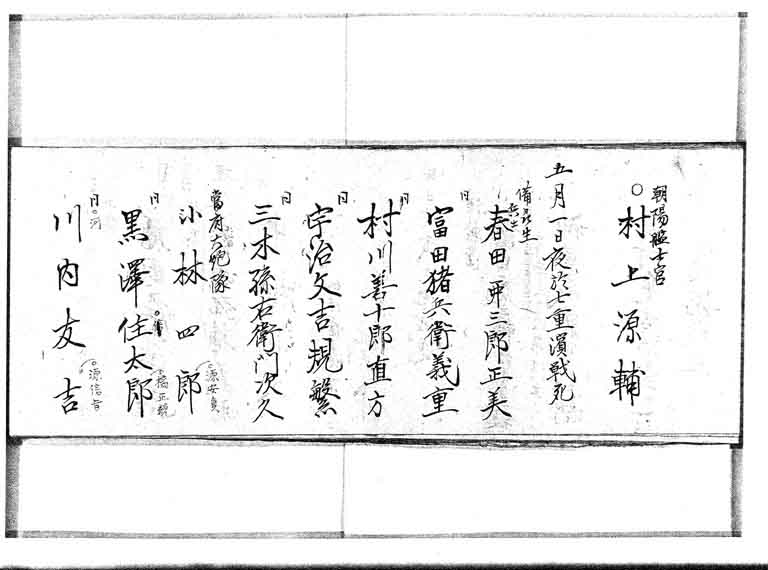 朝陽艦士官
○村上源輔
五月一日夜於七重濵戦死
備品生
春田 三郎正美
同
富田猪兵衛義重
同
村川善十郎直方
同
宇治文吉規繁
同
三木孫右衛門次久
當府大炮隊
小林四郎
源安貞
同
黒澤住太郎
橘正
同
○河
川内友吉
○源信吉